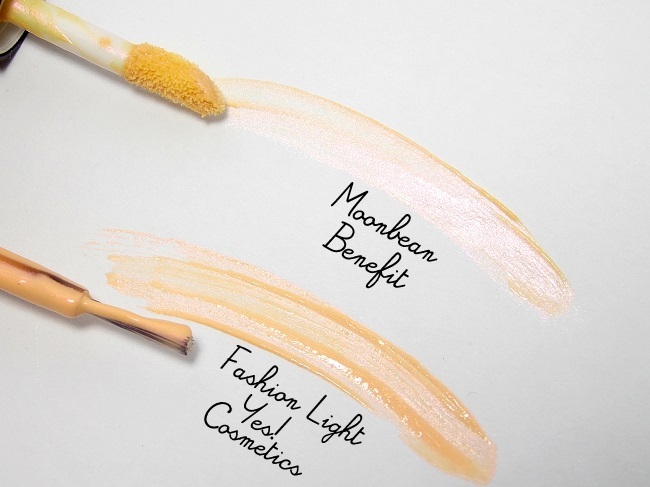 Moonbean
Benefit
Fashion Light
Yes!
Cosmetics